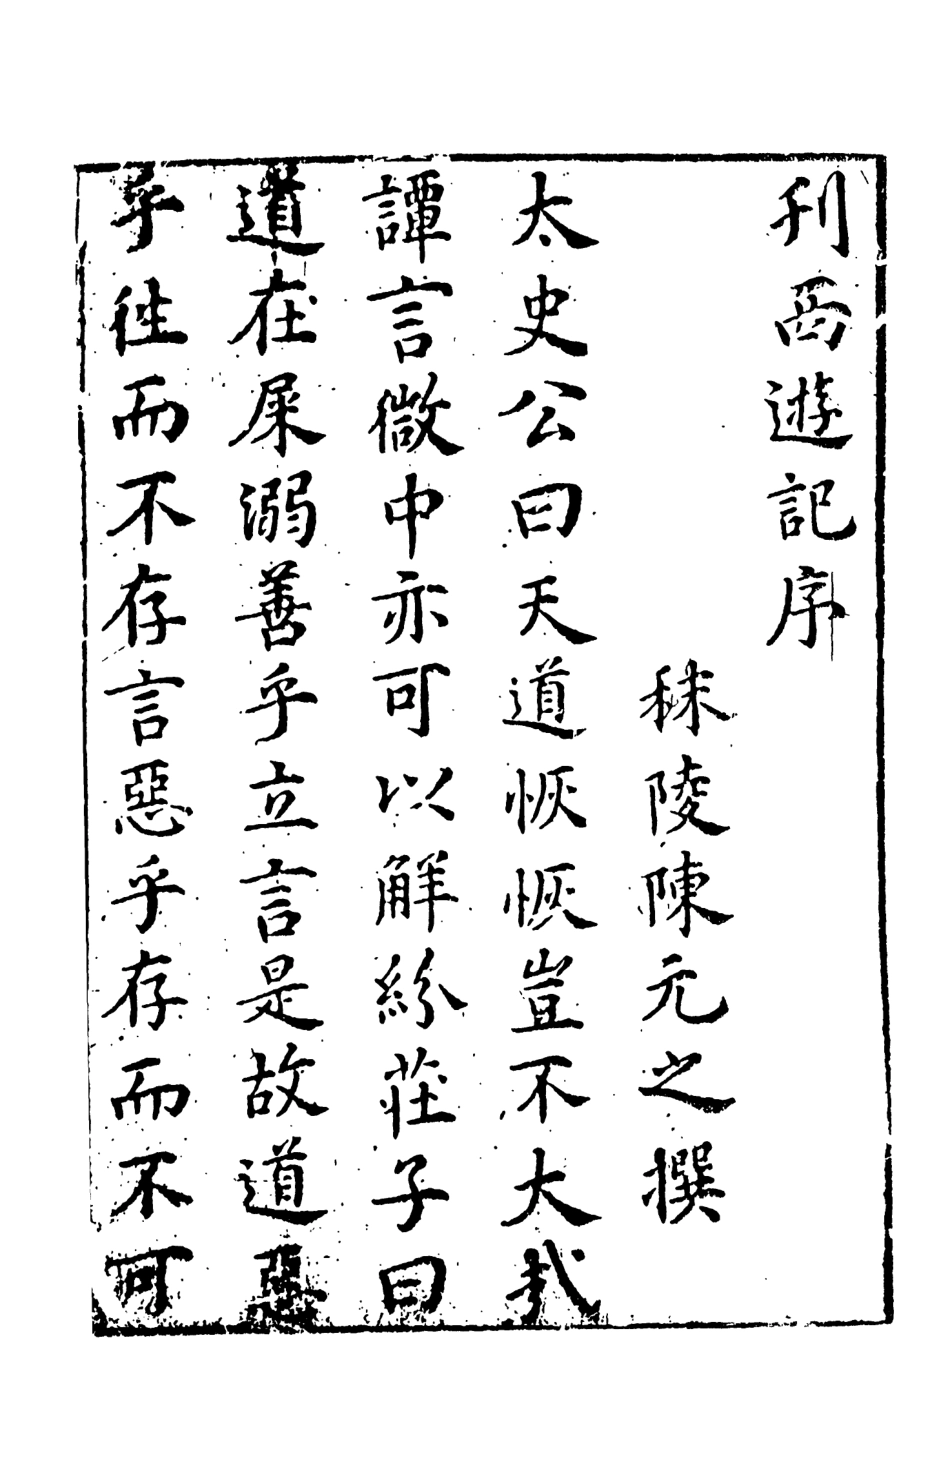 刊西遊記序
秣陵陳元之撰
太史公曰天道恢恢豈不大哉
譚言微中亦可以解紛莊子曰
道在屎溺善乎立言是故道惡
乎徃而不存言惡乎存而不可